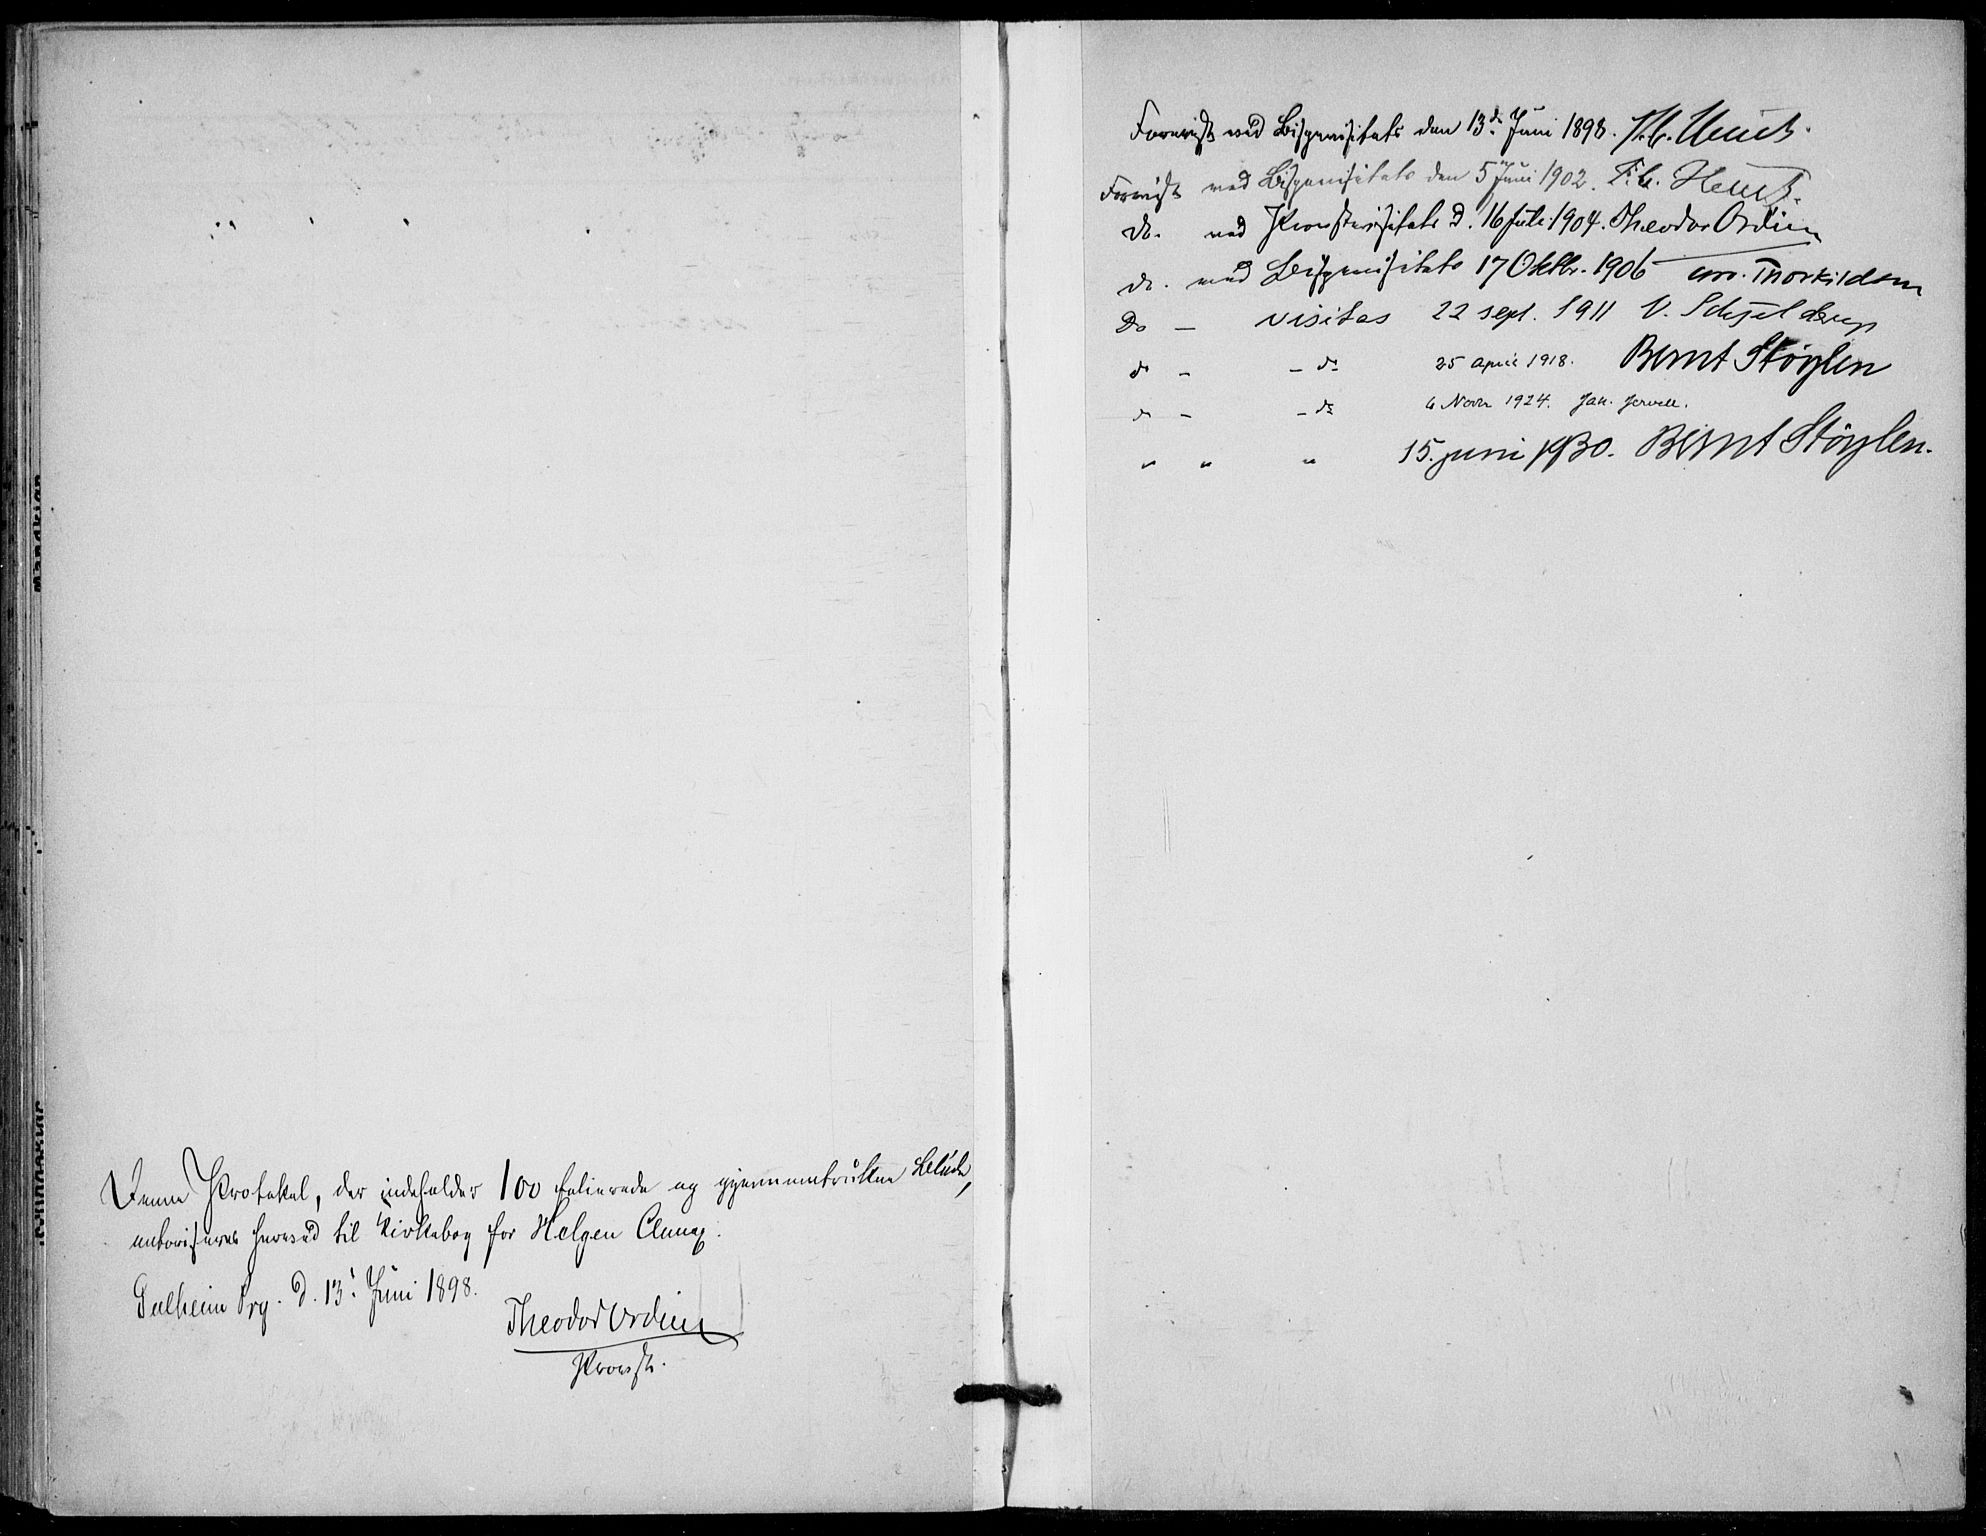 Denne Protokol, der indeholder 100 folierede og gjennemtrukne Blade,
autoriseres herved til Kirkebog for Helgen Annex.
Solheim Prg. d. 13. Juni 1898.
Theodor Ordin
Provst.
Forevist ved Bispevisitats den 13de Juni 1898.
Forevist ved Bispevisitats den 5te Juni 1902.
Do. ved Provstevisitats d. 16 Juli 1904. Theodor Ordin
do. ved Bispevisitats 17 Oktbr. 1906 Thorkildsen
Do — visitas 22 sept. 1911 V. Schjelderup
do — — do 25 April 1918. Bernt Støylen
do — — do 6 Novbr 1924. Jak. Jervell.
" " " 15. juni 1930. Bernt Støylen.